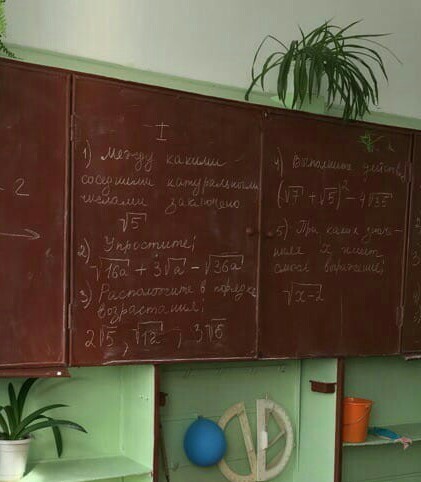 - 2
I
1) Между какими
соседними натуральными
числами заключено
√5
2) Упростите:
√16a + 3√a - √36a
3) Расположите в порядке
возрастания:
2√5, √12, 3√6
4) Выполните действ.
(√7 + √5)² - 4√35
5) При каких значе-
ниях x имеет
смысл выражение:
√x-2